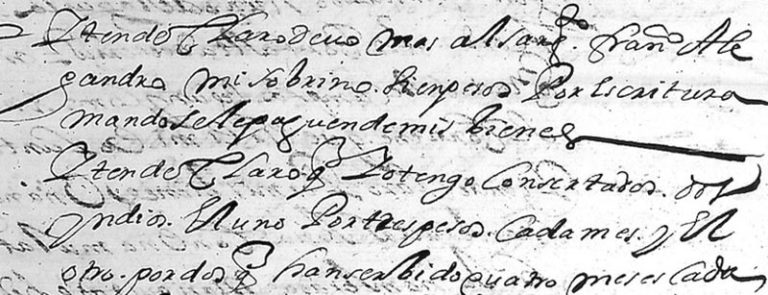 Yten declaro devo mas al sarg.to fran.co Ale
gandro mi sobrino sien pesos Por escritura
mando se le paguen de mis bienes
Yten declaro q Yo tengo consertados dos
Yndios El uno Por tres pesos cada mes y El
otro por dos q han serbido quatro meses cada